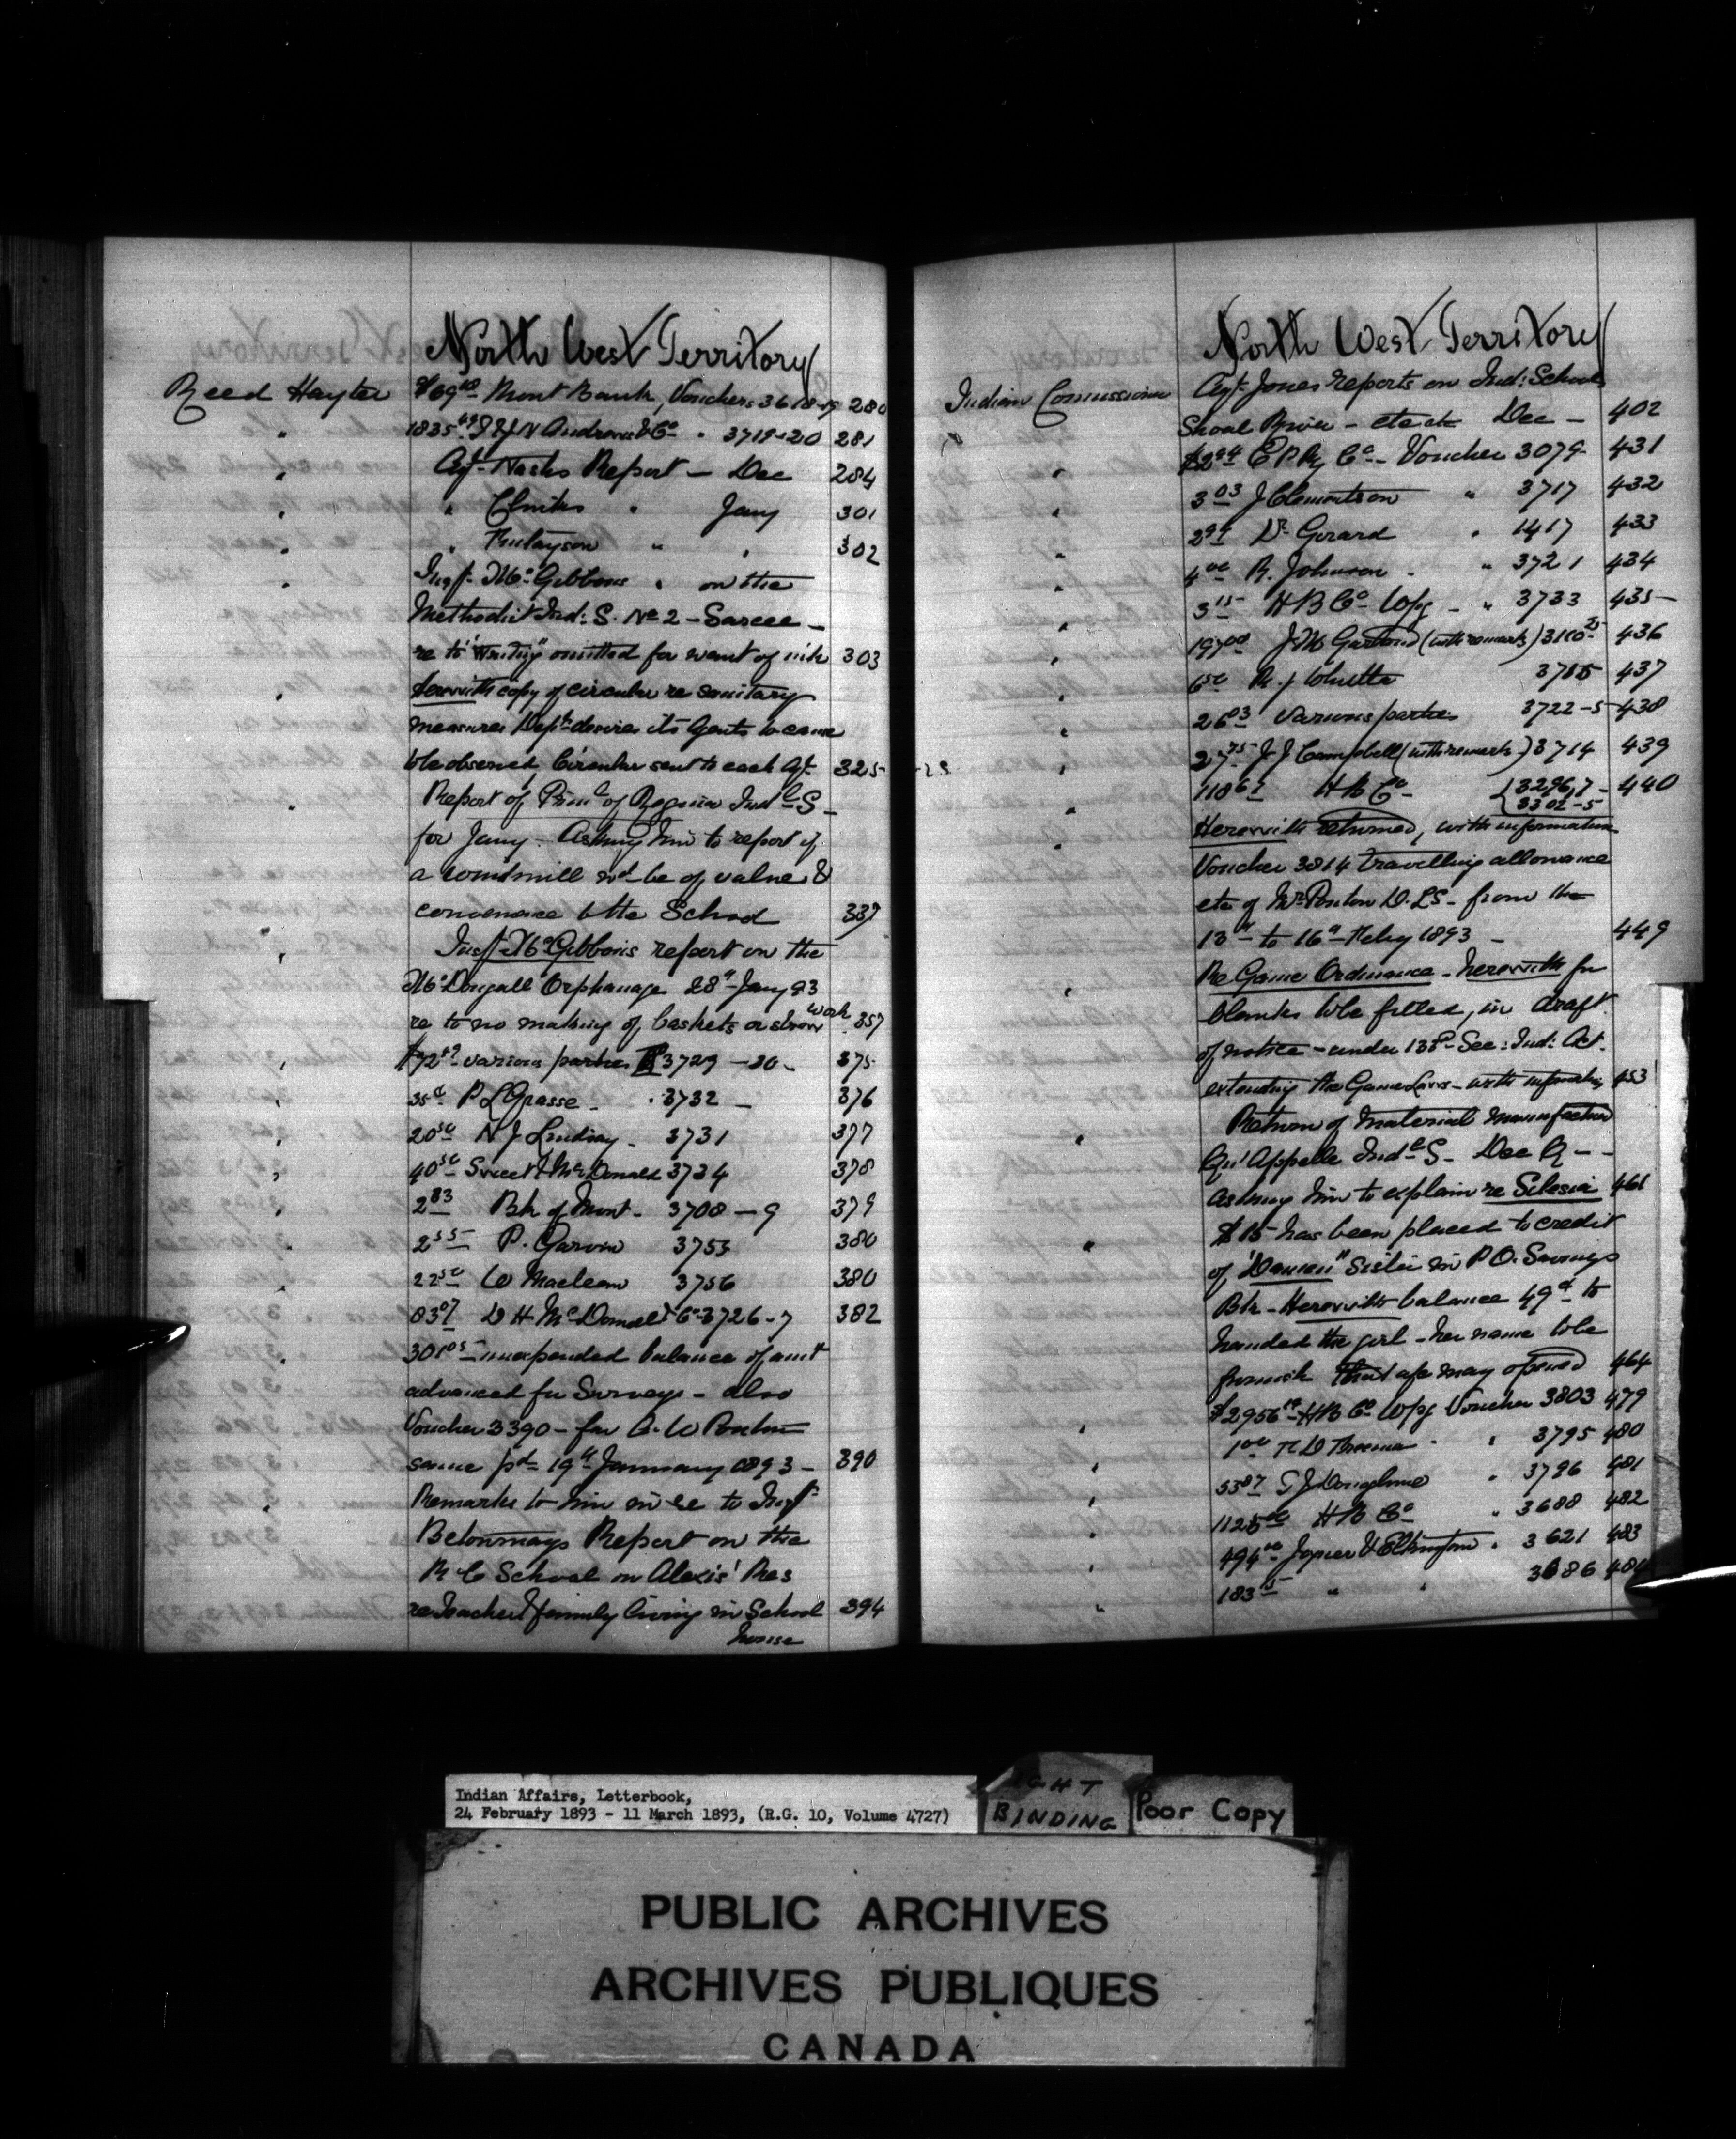 North West Territory
Reed Hayter $69.00 Mont Bank, Vouchers 3618-19 280
" 1835.49 & Co " 3719-20 281
" Agt Nash's Report - Dec 284
" " " Jany 301
" " Finlayson " " 302
" Insp. McGibbons " on the
Methodist Ind: S. No 2 - Sarcee -
re to "writing" omitted for want of ink 303
" Herewith copy of circular re sanitary
measures Dept desires its Agents to cause
to be observed, Circular sent to each Agt. 325
" Report of Prinl of Regina Indl S -
for Jany - Asking him to report if
a windmill wd be of value &
convenience to the School 337
" Insp. McGibbons report on the
McDougall Orphanage 28th Jany 93
re to no making of baskets or straw work 357
" various parties 3729 - 30 - 375
" 35c P L Grasse - 3732 - 376
" 20.50 N J Lindsay - 3731 377
" 40.50 Sweet & McDonald 3734 378
" 2.83 Bk of Mont - 3708 - 9 379
" 2.55 P. Garvin 3755 380
" 22.50 W Maclean 3756 380
" 83.07 D H McDonald & Co 3726 - 7 382
" 301.05 unexpended balance of amt
advanced for Surveys - also
Voucher 3390 - for A. W Ponton
same pd 19th January 1893 - 390
" Remarks to him in re to Insp
Betournays Report on the
R C School on Alexis' Res
re Teacher & family living in School 394
house
North West Territory
Indian Commissioner Agt Jones reports on Ind: Schools
" Shoal River - etc etc Dec - 402
" C P Ry Co - Voucher 3079 431
" 3.03 J Clementson " 3717 432
" Dr Girard " 1417 433
" 4.00 R. Johnson " 3721 434
" 3.15 H B Co Wpg - " 3733 435
" 197.00 J M Garland (with remarks) 436
" 6.50 437
" 26.03 Various parties 3722 - 5 438
" 27.75 J J Campbell (with remarks) 3714 439
" H B Co - 3296, 7 - 440
3302 - 5
" Herewith returned, with information
Voucher 3814 travelling allowance
etc of Mr Ponton D.L.S - from the
13th to 16th Feby 1893 - 449
" Re Game Ordinance - herewith for
blanks to be filled, in draft
of notice - under 133 Sec: Ind: Act.
extending the Game Laws - with information 453
" Return of material manufactured
Qu'Appelle Indl S - Dec Q - -
asking him to explain re Silesia 461
" $15 has been placed to credit
of "Damien" Sister in P O. Savings
Bk - Herewith balance 49c to
handed the girl - her name to be
furnish that a/c may opened 464
" H B Co Wpg Voucher 3803 479
" 1.00 " 3795 480
" 53.87 " 3796 481
" 1125.00 H B Co " 3688 482
" 494.00 Joyner & Elkington " 3621 483
" 183.15 " " 3686 484
Indian Affairs, Letterbook,
24 February 1893 - 11 March 1893, (R.G. 10, Volume 4727)
BINDING
Poor Copy
PUBLIC ARCHIVES
ARCHIVES PUBLIQUES
CANADA